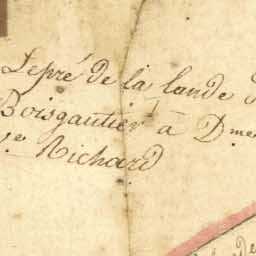 Lepré de la lande d
Boisgautier à Dme
Richard